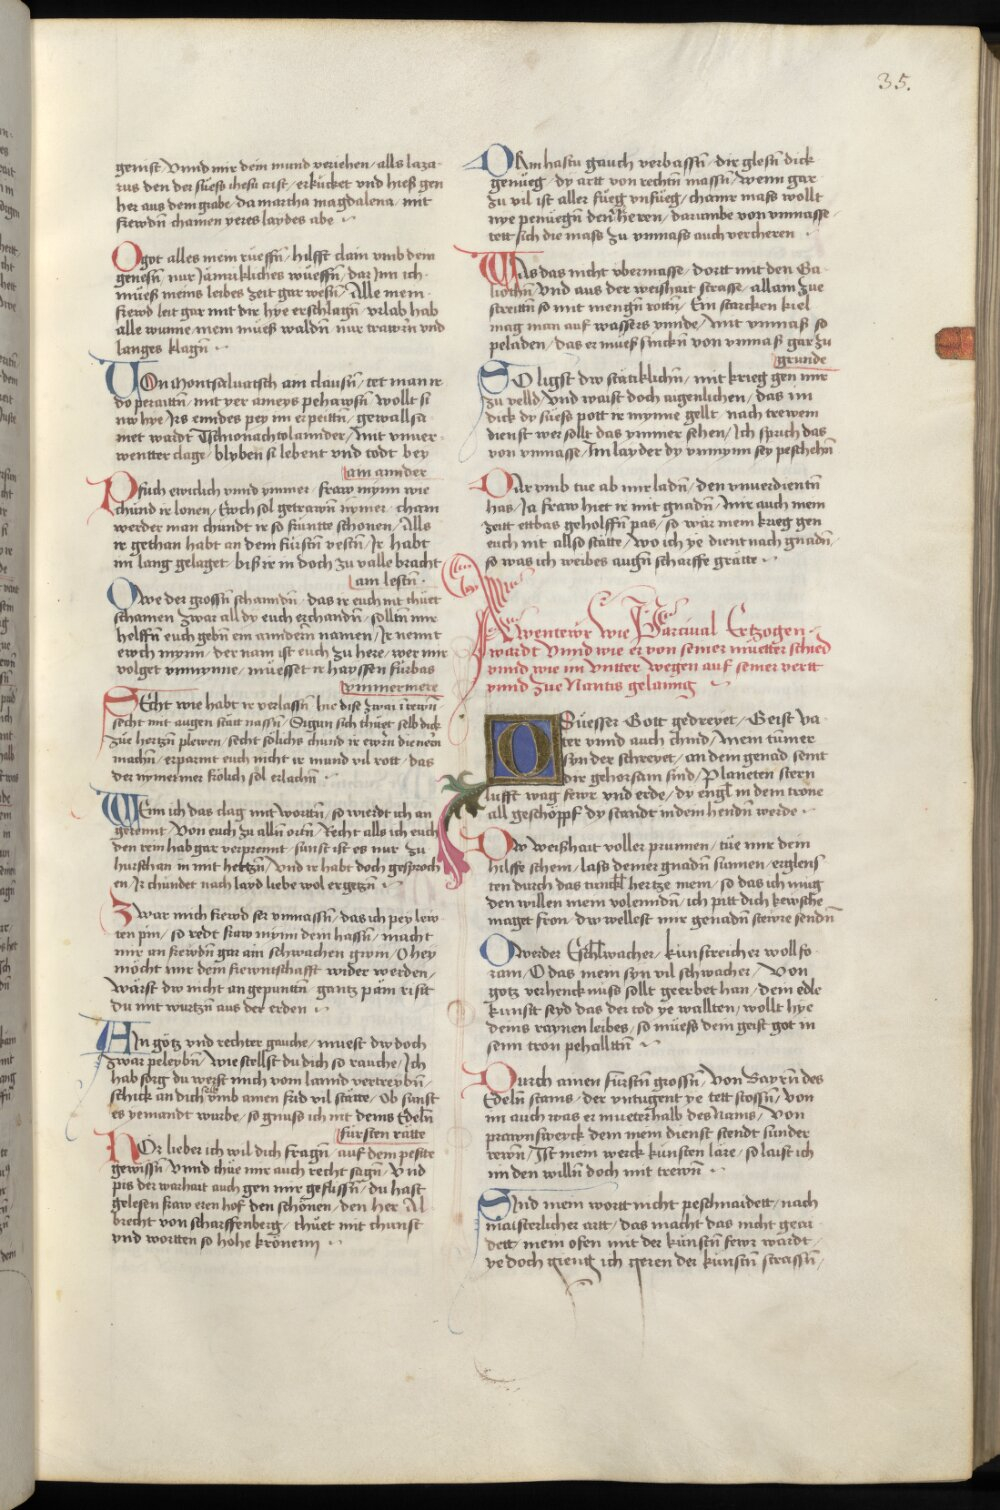 35.
genist / Vnnd mir dein mund veriehen / alls laza-
rus den der süess ihesu crist / erkücket vnd hieß gen
her aus dem grabe / da martha magdalena / mit
frewdñ chamen yeres laydes abe
O got alles mein rüeffñ / hilfft clain vmb dem
genesñ / nur Jamrikliches wüeffñ / dar Jnn ich
müeß meins leibes zeit gar wesñ / Alle mein
frewd leit gar mit dir hye erschlagñ / vrlab hab
alle wunne / mein müeß waldñ / nur trawrñ vnd
langes klagñ
Von Montsaluatsch am clausñ / tet man ir
do peraittñ / mit yer ameys pehawsñ / wollt si
nw hye / Jrs enndes pey im erpeittñ / gewallsa-
met wardt Tschionachtolannder / mit vnuer-
wentter clage / blyben si lebent vnd todt bey
ain annder
Pfuch ewiclich vnnd ymmer / fraw mynn wie
chünd ir lonen / Ewch sol getrawñ nymer / cham
werder man chündt ir so früntte schonen / Alls
ir gethan habt an dem fürstñ vestñ / Jr habt
im lang gelaget / biß ir in doch zu valle bracht
am lestñ
Owe der grossñ schanndñ / das ir euch nit thüet
schamen / zwar all dy euch erchandñ / solltñ mir
helffñ euch gebñ ein anndern namen / Jr nennt
ewch mynn / der nam ist euch zu here / wer mir
volget vnmynne / müesset ir hayssen fürbas
ymmermere
Secht wie habt ir verlassñ / hie dise zwai irewñ
secht mit augen statt nassñ / Sigun sich thüet selb dick
zue hertzñ plewen / secht solichs chünd ir ewrñ dienern
machñ / erparmt euch nicht ir mund vil rott / das
der nymermer frölich sol erlachñ
Wenn ich das clag mit worttñ / so wierdt ich an
gerennt / Von euch zu alln ortñ / Recht alls ich euch
den rein hab gar verprennt / sünst ist es nur zu
hurschan in mit hertzñ / Vnd ir habt doch gesproch
en / Jr chündet nach layd liebe wol ergetzñ
Zwar mich frewd ser vnmassñ / das ich pey lew
ten pin / so redt fraw mynn dem hassñ / macht
mir an frewdñ gar ain schwachen gwin / O hey
möcht mir dein frewntschafft wider werden /
wärst dw nicht angepunttñ / gantz päm risit
du mit wurtzñ aus der erden
Ain götz vnd rechter gauche / muest dw doch
zwar peleybñ / wie stellst du dich so rauche / Jch
hab sorg du werfst mich vom lannd vertreybñ /
schick an dich vmb amen frid vil stätte / Ob sünst
es yemandt wurbe / so gnuss ich mit deins Edeln
fürsten rätte
Hor lieber ich wil dich fragñ / auf dem peste
gewissñ / Vnnd thüe mir auch recht sagñ / Vnd
pis der warhait auch gen mir geflissñ / du hast
gelesen fraw eren hof den schönen / den her Al-
brecht von scharffenberg / thüet mit chunst
vnd wortten so hohe krönenn
Darin hastu gauch verbassñ / dir glesñ dick
genüeg / dy artt von rechtñ massñ / wenn gar
zu vil ist aller füeg vnfüeg / chainr mass wollt
nye penüegñ den herren / darumbe von vnmasse
tett sich die mass zu vnmass auch vercheren
Was das nicht vbermasse / dortt mit den Ga-
liothñ / Vnd aus der weißhait strasse / allain zue
streittñ so mit mengñ rottñ / Ein starcken kiel
mag man auf wassers vnnde / mit vnmaß so
peladen / das er müeß sinckñ von vnmaß gar zu
grunde
So ligst dw stättiklichñ / mit krieg gen mir
zu velld / Vnd waist doch aigenlichen / das im
dick dy süess pott ir mynne gellt / nach trewem
dienst wer sollt das ymmer sehen / Jch sprich das
von vnmasse / Jm layder dy vnmynn sey peschehñ
Dar vmb tue ab mir ladñ / den vnuerdientñ
has / Ja fraw hiet ir mit gnadñ / mir auch mein
zeitt ettbas geholffñ pas / so wär mein krieg gen
euch nit allso stätte / wo ich ye dient nach gnadñ /
so was ich weibes augñ scharffe grätte
Awentewr wie Parcival Ertzogen
wardt Vnnd wie er von seiner muetter schied
vnnd wie im vntter wegen auf seiner vertt
vnnd zue Nantis gelanng
O Süesser Gott gedreyet / Geist va-
ter vnnd auch chind / mein tümer
syn der schreyet / an dem genad seint
dir gehorsam sind / Planeten stern
lufft wag fewr vnd erde / dy engl in dem trone
all geschöpff dy standt in dein hendñ werde
Dw weißhait voller prunnen / tüe mir dein
hilffe schein / lass deiner gnadñ sunnen / erglens-
ten durch das tunckl hertze mein / so das ich mug
den willen mein volenndñ / ich pitt dich kewsche
maget fron / dw wellest mir genadñ stewre sendñ
O werder Eschlwacher / kunstreicher wollfo-
ram / O das mein syn vil schwacher / Von
gotz verhencknuss sollt geerbet han / dein edle
kunst seyd das der tod ye wallten / wollt hye
deins raynen leibes / so müess dein geist got in
seim tron pehalltñ
Durch ainen fürstñ grossñ / Von Bayrñ des
Edeln stams / der vntugent ye tett stossñ / Von
im auch was er mueterhalb des Nams / Von
prawnswerck dem mein dienst stendt sunder
rewñ / Jst mein werck künsten läre / so laist ich
im den willñ doch mit trewñ
Sind mein wortt nicht peschnaidett / nach
maisterlicher artt / das macht das nicht gear-
dett / mein ofen mit der künstñ fewr wardt
ye doch gieng ich geren der künstñ strassñ /